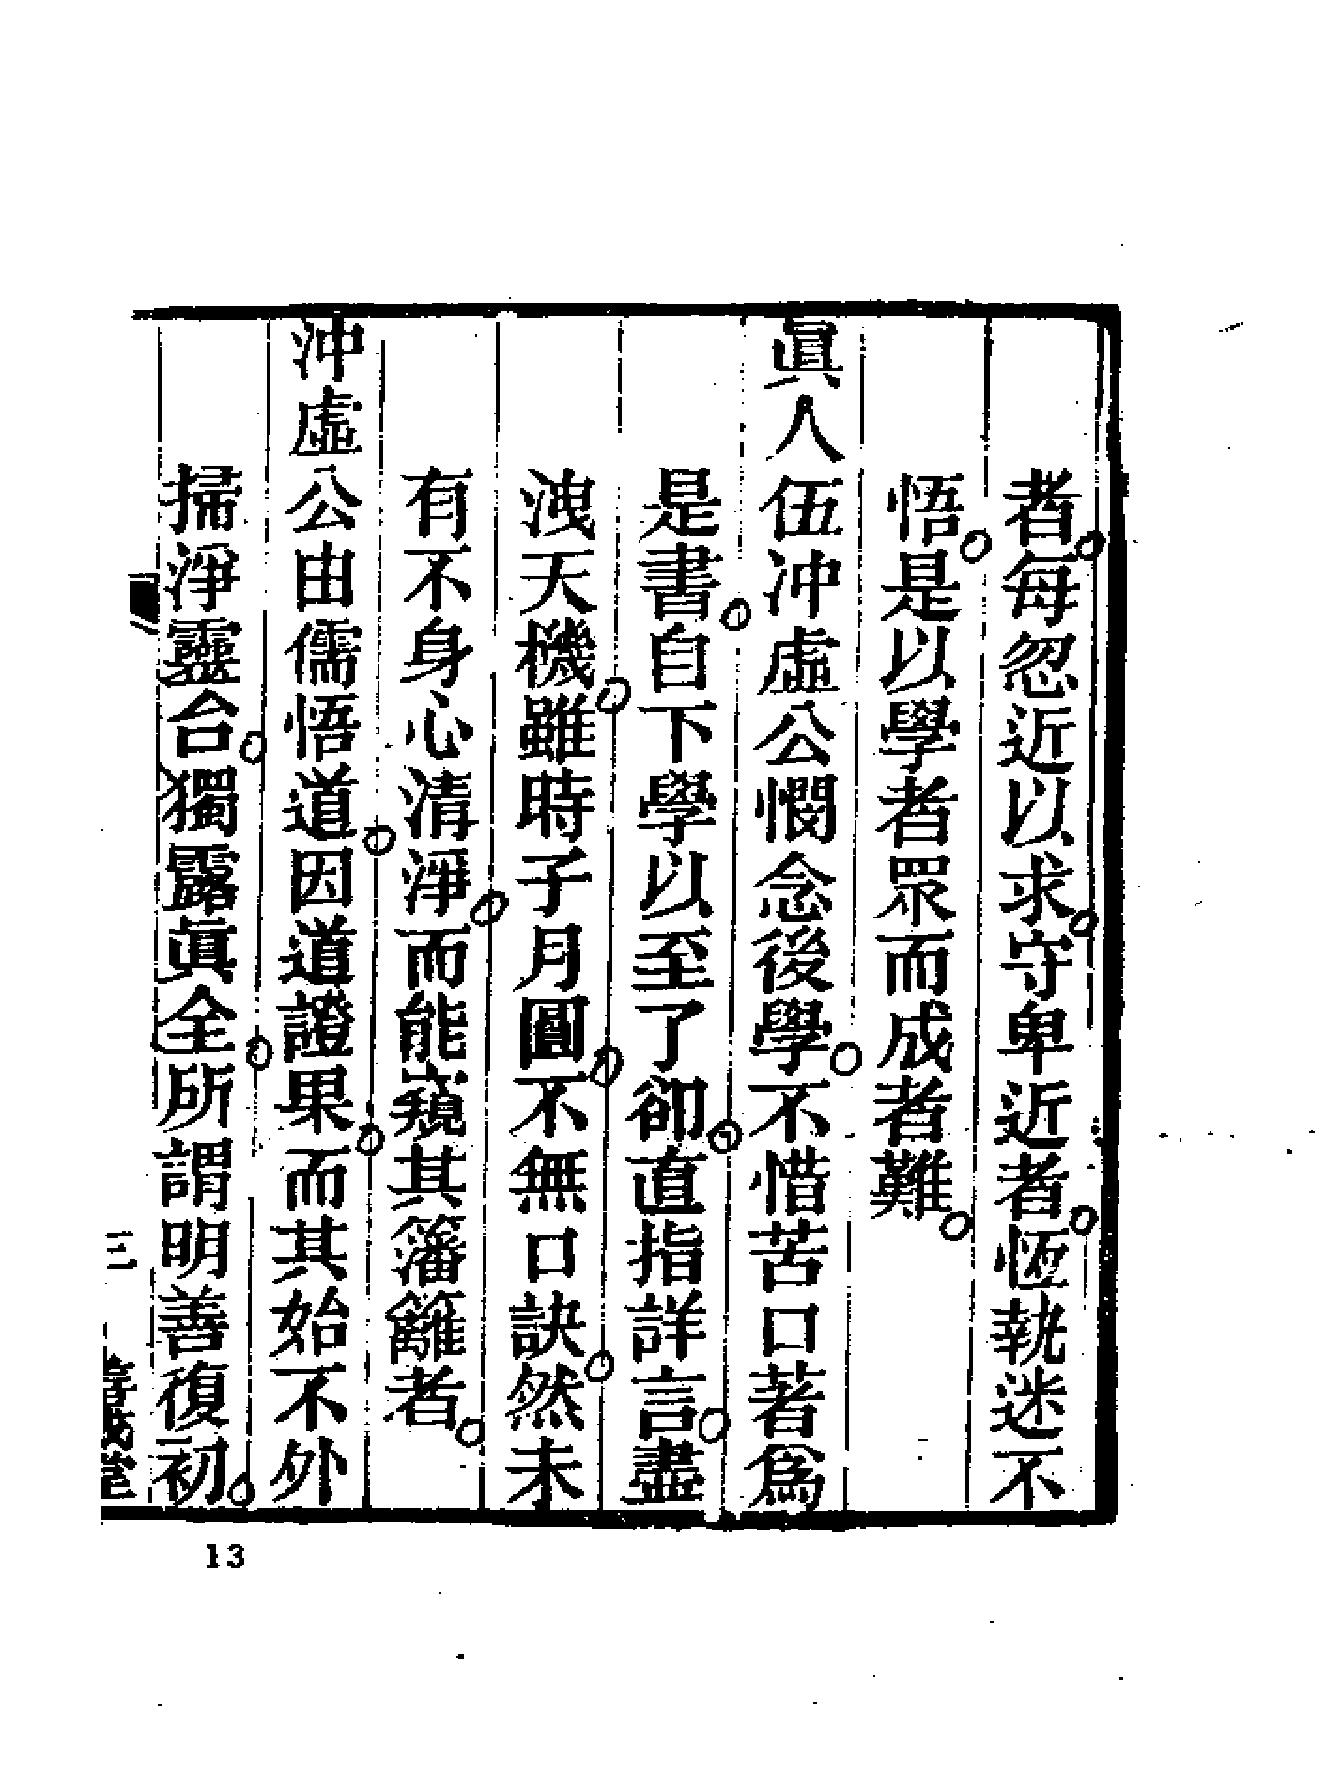 者每忽近以求守卑近者恆執迷不
悟是以學者眾而成者難
眞人伍冲虛公憫念後學不惜苦口著爲
是書自下學以至了卻直指詳言盡
洩天機雖時子月圓不無口訣然未
有不身心清淨而能窺其籓籬者
沖虛公由儒悟道因道證果而其始不外
掃淨靈台獨露眞全所謂明善復初
三
13